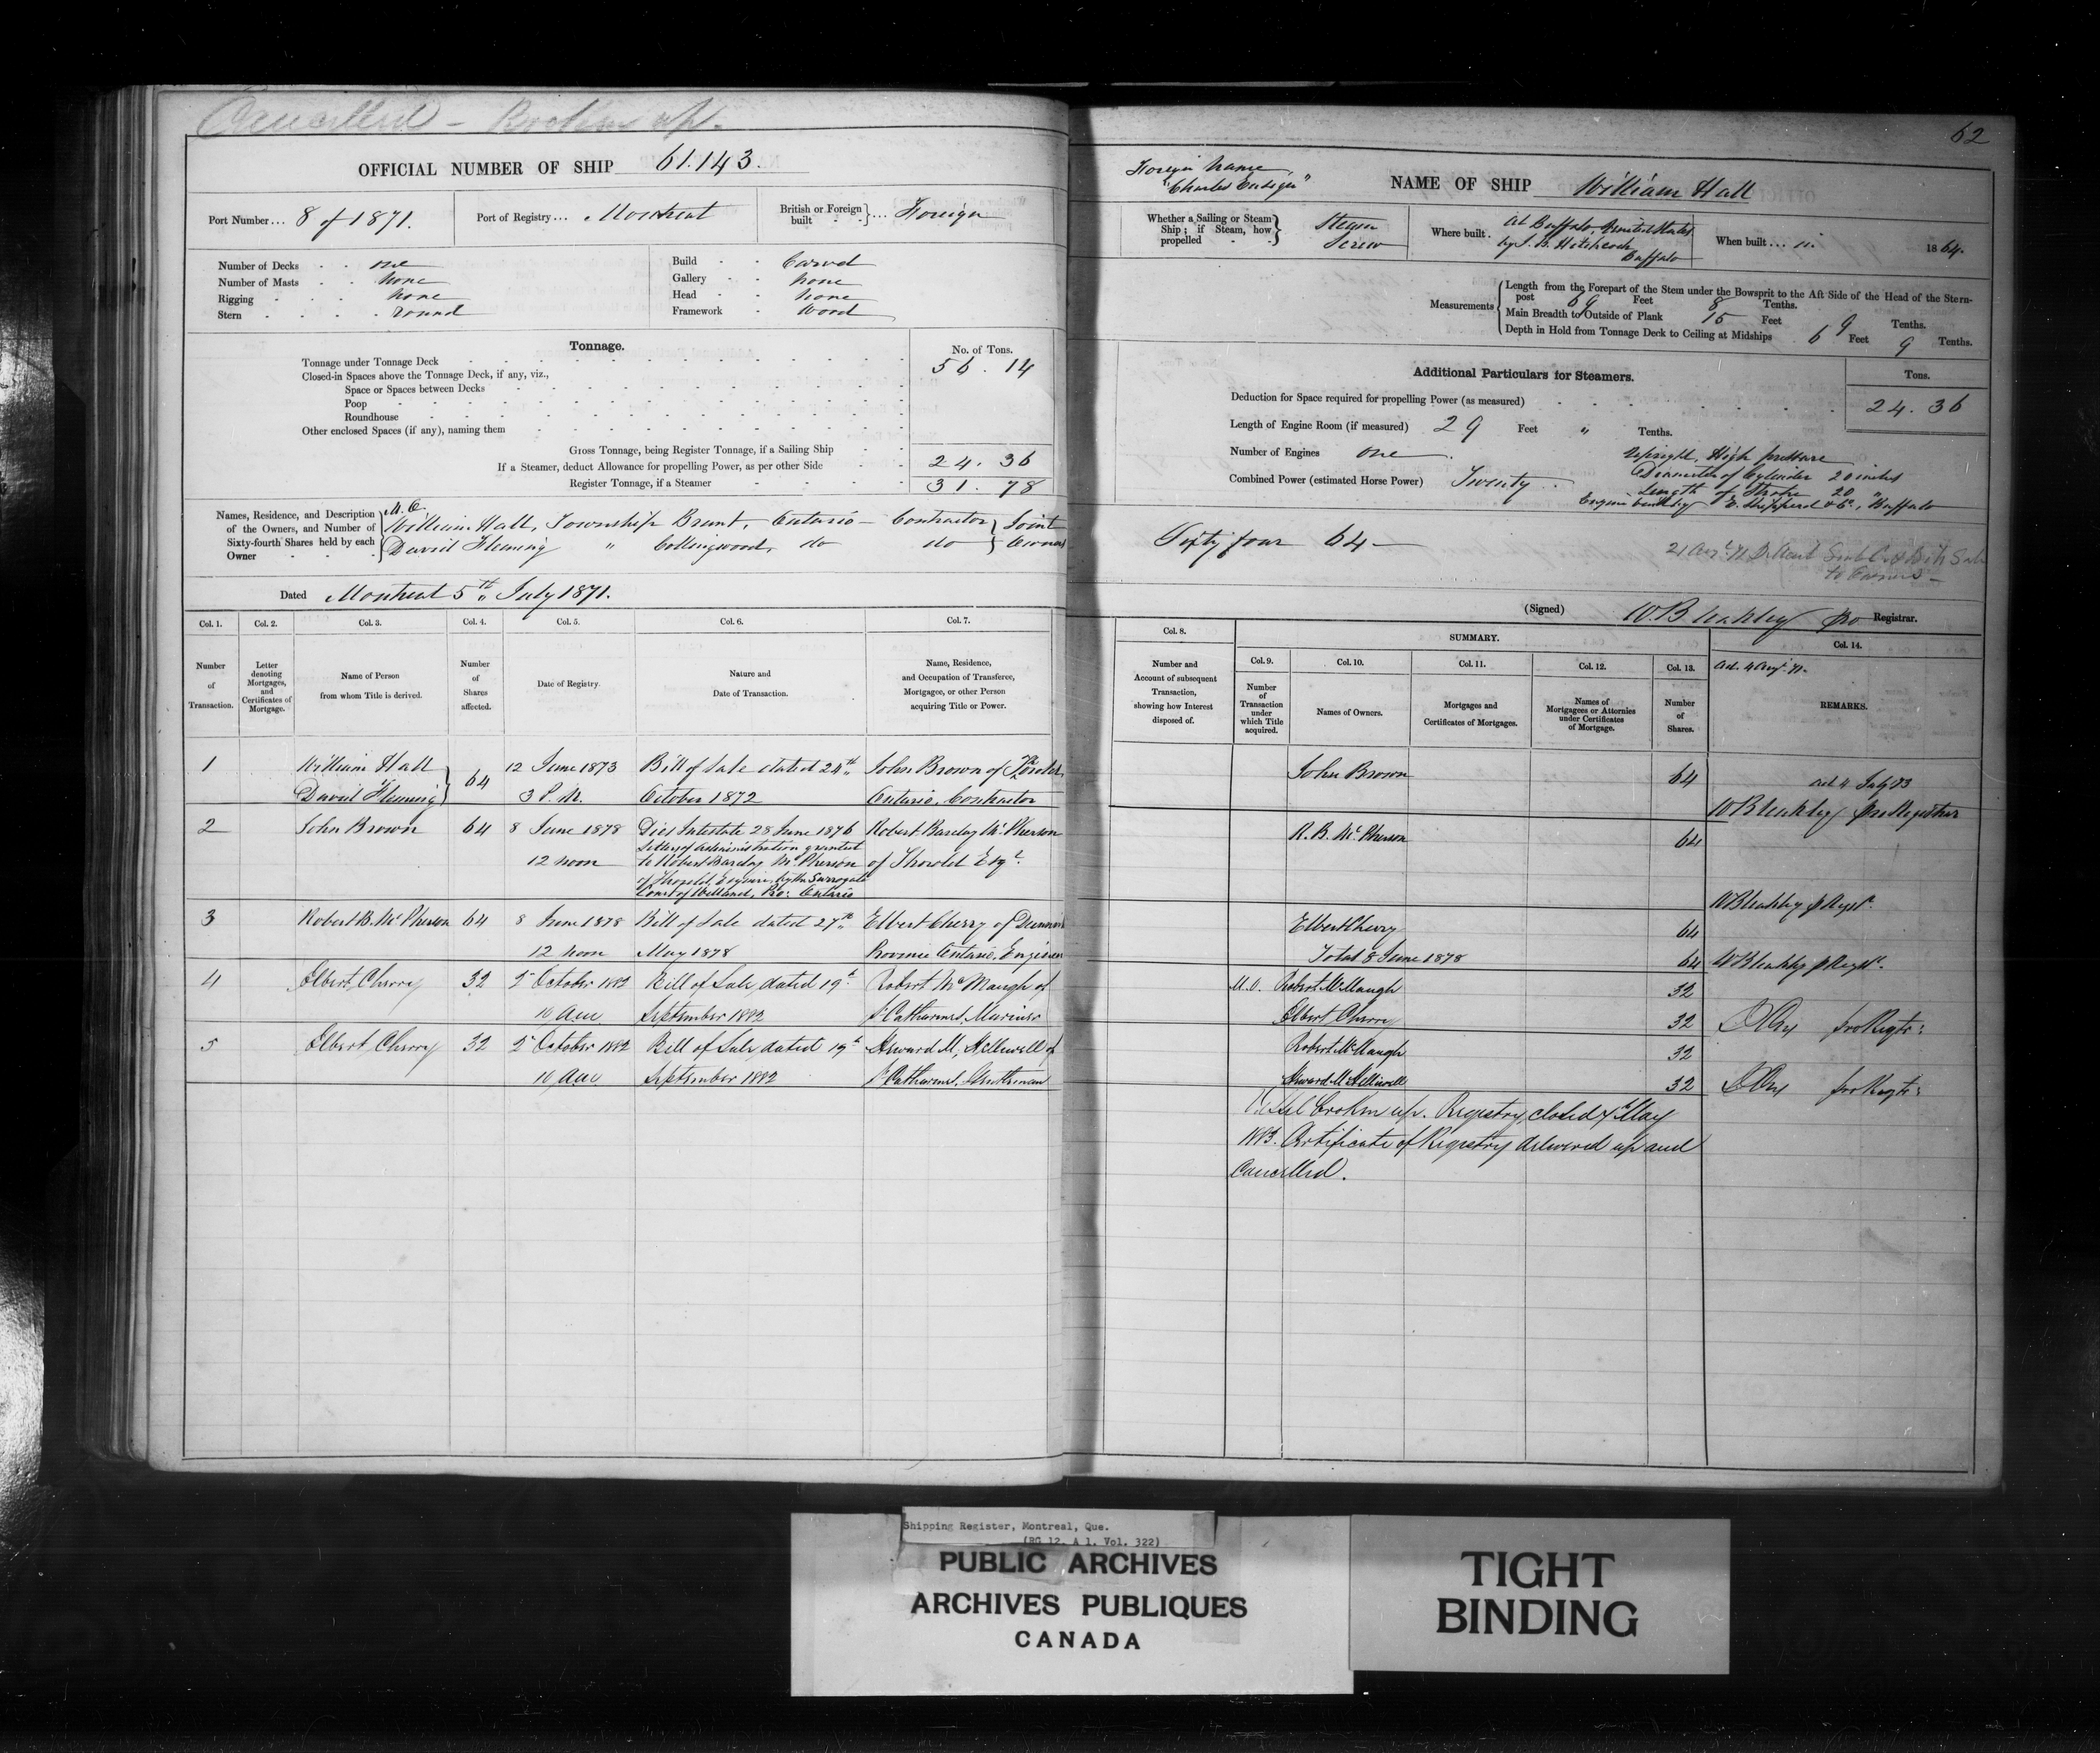 Cancelled - Broken up.
OFFICIAL NUMBER OF SHIP 61.143.
Port Number... 8 of 1871.
Port of Registry... Montreal
British or Foreign built } ... Foreign
Number of Decks . . one
Number of Masts . . none
Rigging . . . none
Stern . . . . round
Build . . Carvel
Gallery . . none
Head . . none
Framework . Wood
Tonnage.
No. of Tons.
Tonnage under Tonnage Deck 56.14
Closed-in Spaces above the Tonnage Deck, if any, viz.,
Space or Spaces between Decks
Poop
Roundhouse
Other enclosed Spaces (if any), naming them
Gross Tonnage, being Register Tonnage, if a Sailing Ship
If a Steamer, deduct Allowance for propelling Power, as per other Side 24.36
Register Tonnage, if a Steamer 31.78
Names, Residence, and Description of the Owners, and Number of Sixty-fourth Shares held by each Owner
M.O.
William Hall, Township Brant, Ontario - Contractor } Joint
David Fleming " Collingwood, do do } Owners
Dated Montreal 5th July 1871.
Col. 1. Col. 2. Col. 3. Col. 4. Col. 5. Col. 6. Col. 7.
Number of Transaction.
Letter denoting Mortgages, and Certificates of Mortgage.
Name of Person from whom Title is derived.
Number of Shares affected.
Date of Registry.
Nature and Date of Transaction.
Name, Residence, and Occupation of Transferee, Mortgagee, or other Person acquiring Title or Power.
1 William Hall } 64 12 June 1873 Bill of Sale dated 24th John Brown of Thorold
David Fleming } 3 P.M. October 1872 Ontario, Contractor
2 John Brown 64 8 June 1878 Died Intestate 28 June 1876 Robert Barclay McPherson
Letters of Administration granted
12 noon to Robert Barclay McPherson of Thorold Esqr.
of Thorold, Esquire, by the Surrogate
Court of Welland, Pro: Ontario
3 Robert B. McPherson 64 8 June 1878 Bill of Sale dated 27th Elbert Cherry of
12 noon May 1878 Province Ontario, Engineer
4 Elbert Cherry 32 2 October 1882 Bill of Sale, dated 19th Robert McMaugh of
10 am September 1882 St Catharines, Mariner
5 Elbert Cherry 32 2 October 1882 Bill of Sale, dated 19th Helliwell of
10 am September 1882 St Catharines, Gentleman
62
Foreign Name
"Charles Ensign"
NAME OF SHIP William Hall
Whether a Sailing or Steam Ship; if Steam, how propelled } Steam Screw
Where built . At Buffalo, United States
by J. B. Hitchcock
Buffalo
When built ... in 1864.
Measurements
Length from the Forepart of the Stem under the Bowsprit to the Aft Side of the Head of the Stern-
post 69 Feet 8 Tenths.
Main Breadth to Outside of Plank 15 Feet 9 Tenths.
Depth in Hold from Tonnage Deck to Ceiling at Midships 6 Feet 9 Tenths.
Additional Particulars for Steamers.
Tons.
Deduction for Space required for propelling Power (as measured) 24.36
Length of Engine Room (if measured) 29 Feet " Tenths.
Number of Engines one.
Combined Power (estimated Horse Power) Twenty
Upright, High pressure
Diameter of Cylinder 20 inches
Length of Stroke 20 "
Engine built by E. Shepperd & Co., Buffalo
Sixty four 64 -
to Owners -
(Signed) W.B. Leahley pro Registrar.
Col. 8.
SUMMARY.
Col. 9. Col. 10. Col. 11. Col. 12. Col. 13. Col. 14.
Number and Account of subsequent Transaction, showing how Interest disposed of.
Number of Transaction under which Title acquired.
Names of Owners.
Mortgages and Certificates of Mortgages.
Names of Mortgagees or Attornies under Certificates of Mortgage.
Number of Shares.
REMARKS.
John Brown 64
R. B. McPherson 64
Elbert Cherry 64
Total 8 June 1878 64
M.O. Robert McMaugh 32
Elbert Cherry 32
Robert McMaugh 32
Helliwell 32
Vessel broken up. Registry closed May
1883. Certificate of Registry delivered up and
Cancelled.
Shipping Register, Montreal, Que.
(RG 12, A 1, Vol. 322)
PUBLIC ARCHIVES
ARCHIVES PUBLIQUES
CANADA
TIGHT
BINDING